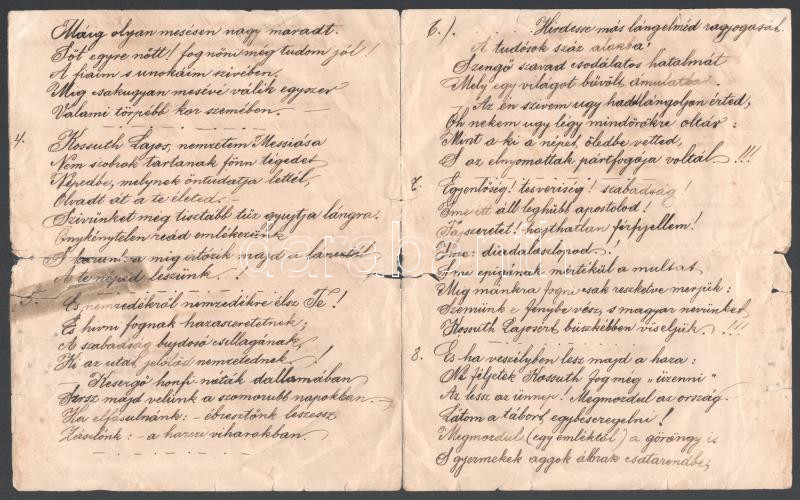 Máig olyan mesésen nagy maradt.
Sőt egyre nőtt! fog nőni még tudom jól!
A fiaim s unokáim szívében.
Míg csakugyan mesévé válik egyszer
Valami törpébb kor szemében.
4. Kossuth Lajos, nemzetem Messiása
Nem szobrok tartanak fönn tégedet
Népedbe, melynek öntudatja lettél,
Olvadt át a te életed.
Szivünket még tisztább tűz gyujtja lángra!
Önkénytelen reád emlékezünk
S karunk a míg irtózik majd a lánctól
A te néped leszünk. !
5. És nemzedékről nemzedékre élsz Te!
És hívni fognak hazaszeretetnek;
A szabadság bujdosó csillagának,
Ki az utat jelölöd nemzetednek !
Kesergő honfi nóták dallamában
Sírsz majd velünk a szomorubb napokban.
Ha elfásulnánk: - ébresztőnk leszessz
Zászlónk: - a harczi viharokban.
6.). Hirdesse más lángelméd ragyogását.
A tudósok száz alakba!
Szengő szavad csodálatos hatalmát
Mely egy világot bűvölt ámulatba.
Az én szivem ugy hadd lángoljon érted,
Oh nekem ugy légy mindörökre oltár:
Mint a ki a népet öledbe vetted,
S az elnyomottak pártfogója voltál !!!
7. Egyenlőség! testvériség! szabadság!
Ime itt áll leghűbb apostolod!
Fajszeretet! hajthatlan férfijellem!
Ime: diadaloszlopod !
Íme eposának mértékül a multat
Míg mánkra fogni csak reszketve merjük:
Szemünk e fénybe vész, s magyar nevünket
Kossuth Lajosért büszkébben viseljük !!!
8. És ha veszélyben lesz majd a haza:
Ne féljetek Kossuth fog még „üzenni"
Az lesz az ünnep! Megmordul az ország.
Látom a tábort, egybeseregelni!
Megmordul (egy emléktől) a göröngy is
S gyermekek aggok állnak csatarendbe;
darabanth